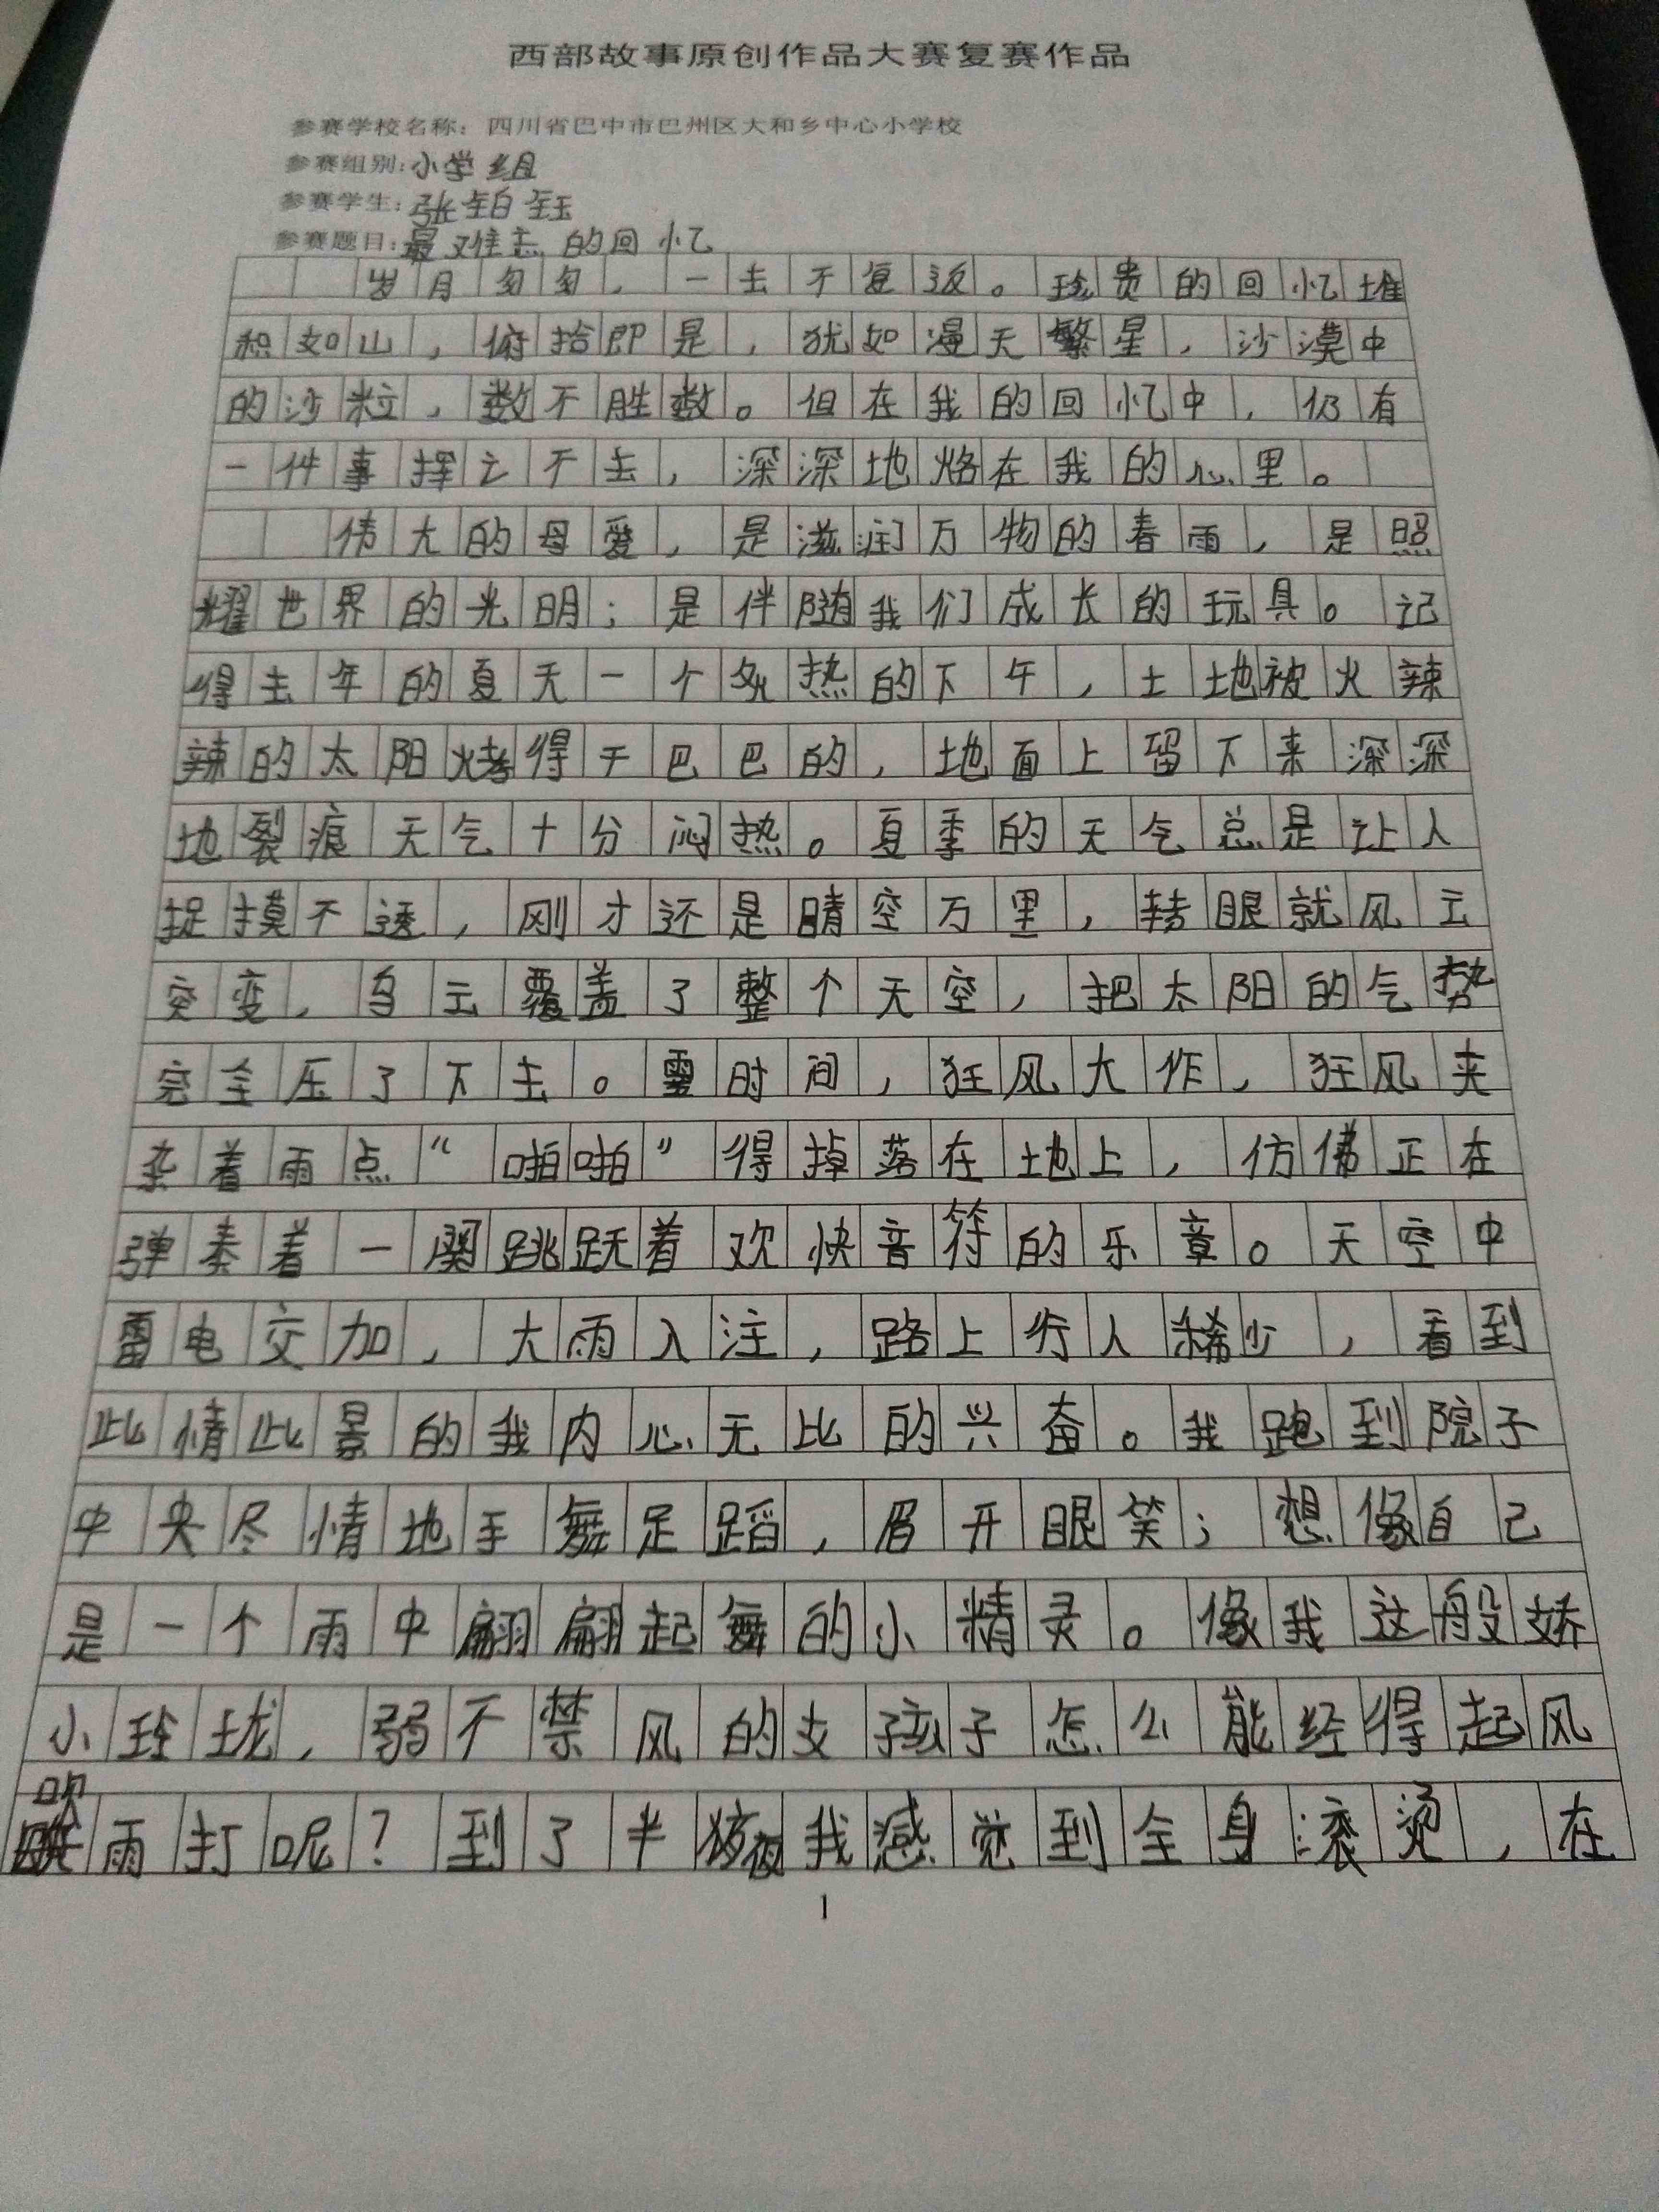 西部故事原创作品大赛复赛作品
参赛学校名称：四川省巴中市巴州区大和乡中心小学校
参赛组别：小学组
参赛学生：张铂钰
参赛题目：最难忘的回忆
岁月匆匆，一去不复返。珍贵的回忆堆
积如山，俯拾即是，犹如漫天繁星，沙漠中
的沙粒，数不胜数。但在我的回忆中，仍有
一件事挥之不去，深深地烙在我的心里。
伟大的母爱，是滋润万物的春雨，是照
耀世界的光明；是伴随我们成长的玩具。记
得去年的夏天一个炙热的下午，土地被火辣
辣的太阳烤得干巴巴的，地面上留下来深深
地裂痕天气十分闷热。夏季的天气总是让人
捉摸不透，刚才还是晴空万里，转眼就风云
突变，乌云覆盖了整个天空，把太阳的气势
完全压了下去。霎时间，狂风大作，狂风夹
杂着雨点“啪啪”得掉落在地上，仿佛正在
弹奏着一阕跳跃着欢快音符的乐章。天空中
雷电交加，大雨入注，路上行人稀少，看到
此情此景的我内心无比的兴奋。我跑到院子
中央尽情地手舞足蹈，眉开眼笑；想像自己
是一个雨中翩翩起舞的小精灵。像我这般娇
小玲珑，弱不禁风的女孩子怎么能经得起风
吹雨打呢？到了半夜我感觉到全身滚烫，在
1